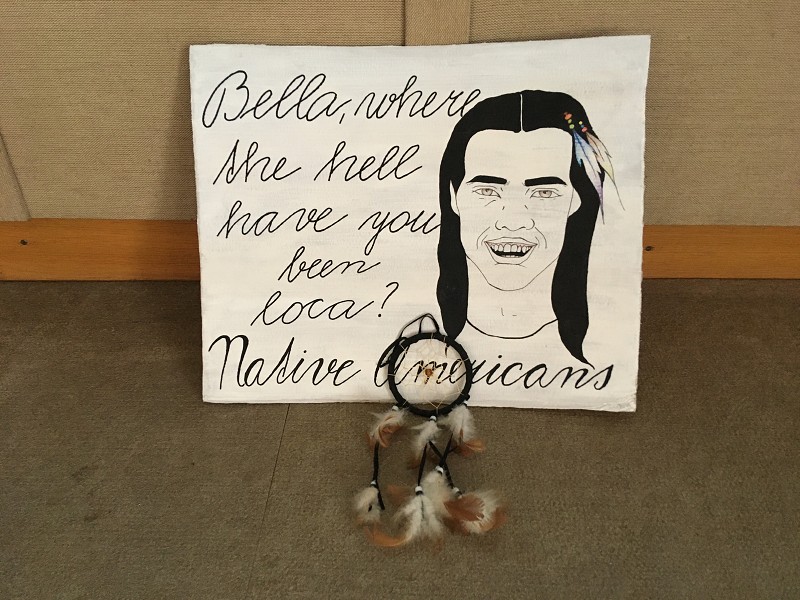 Bella, where
the hell
have you
been
loca?
Native Americans